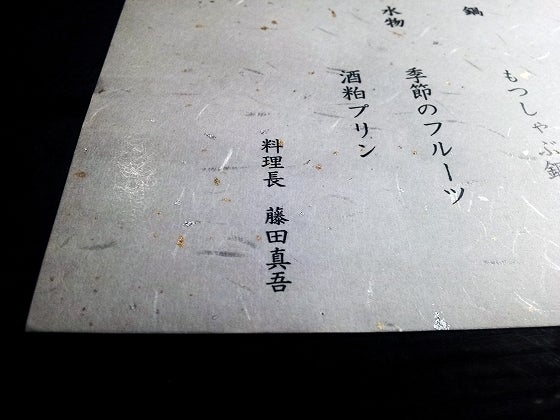 鍋
もつしゃぶ鍋
水物
季節のフルーツ
酒粕プリン
料理長 藤田真吾